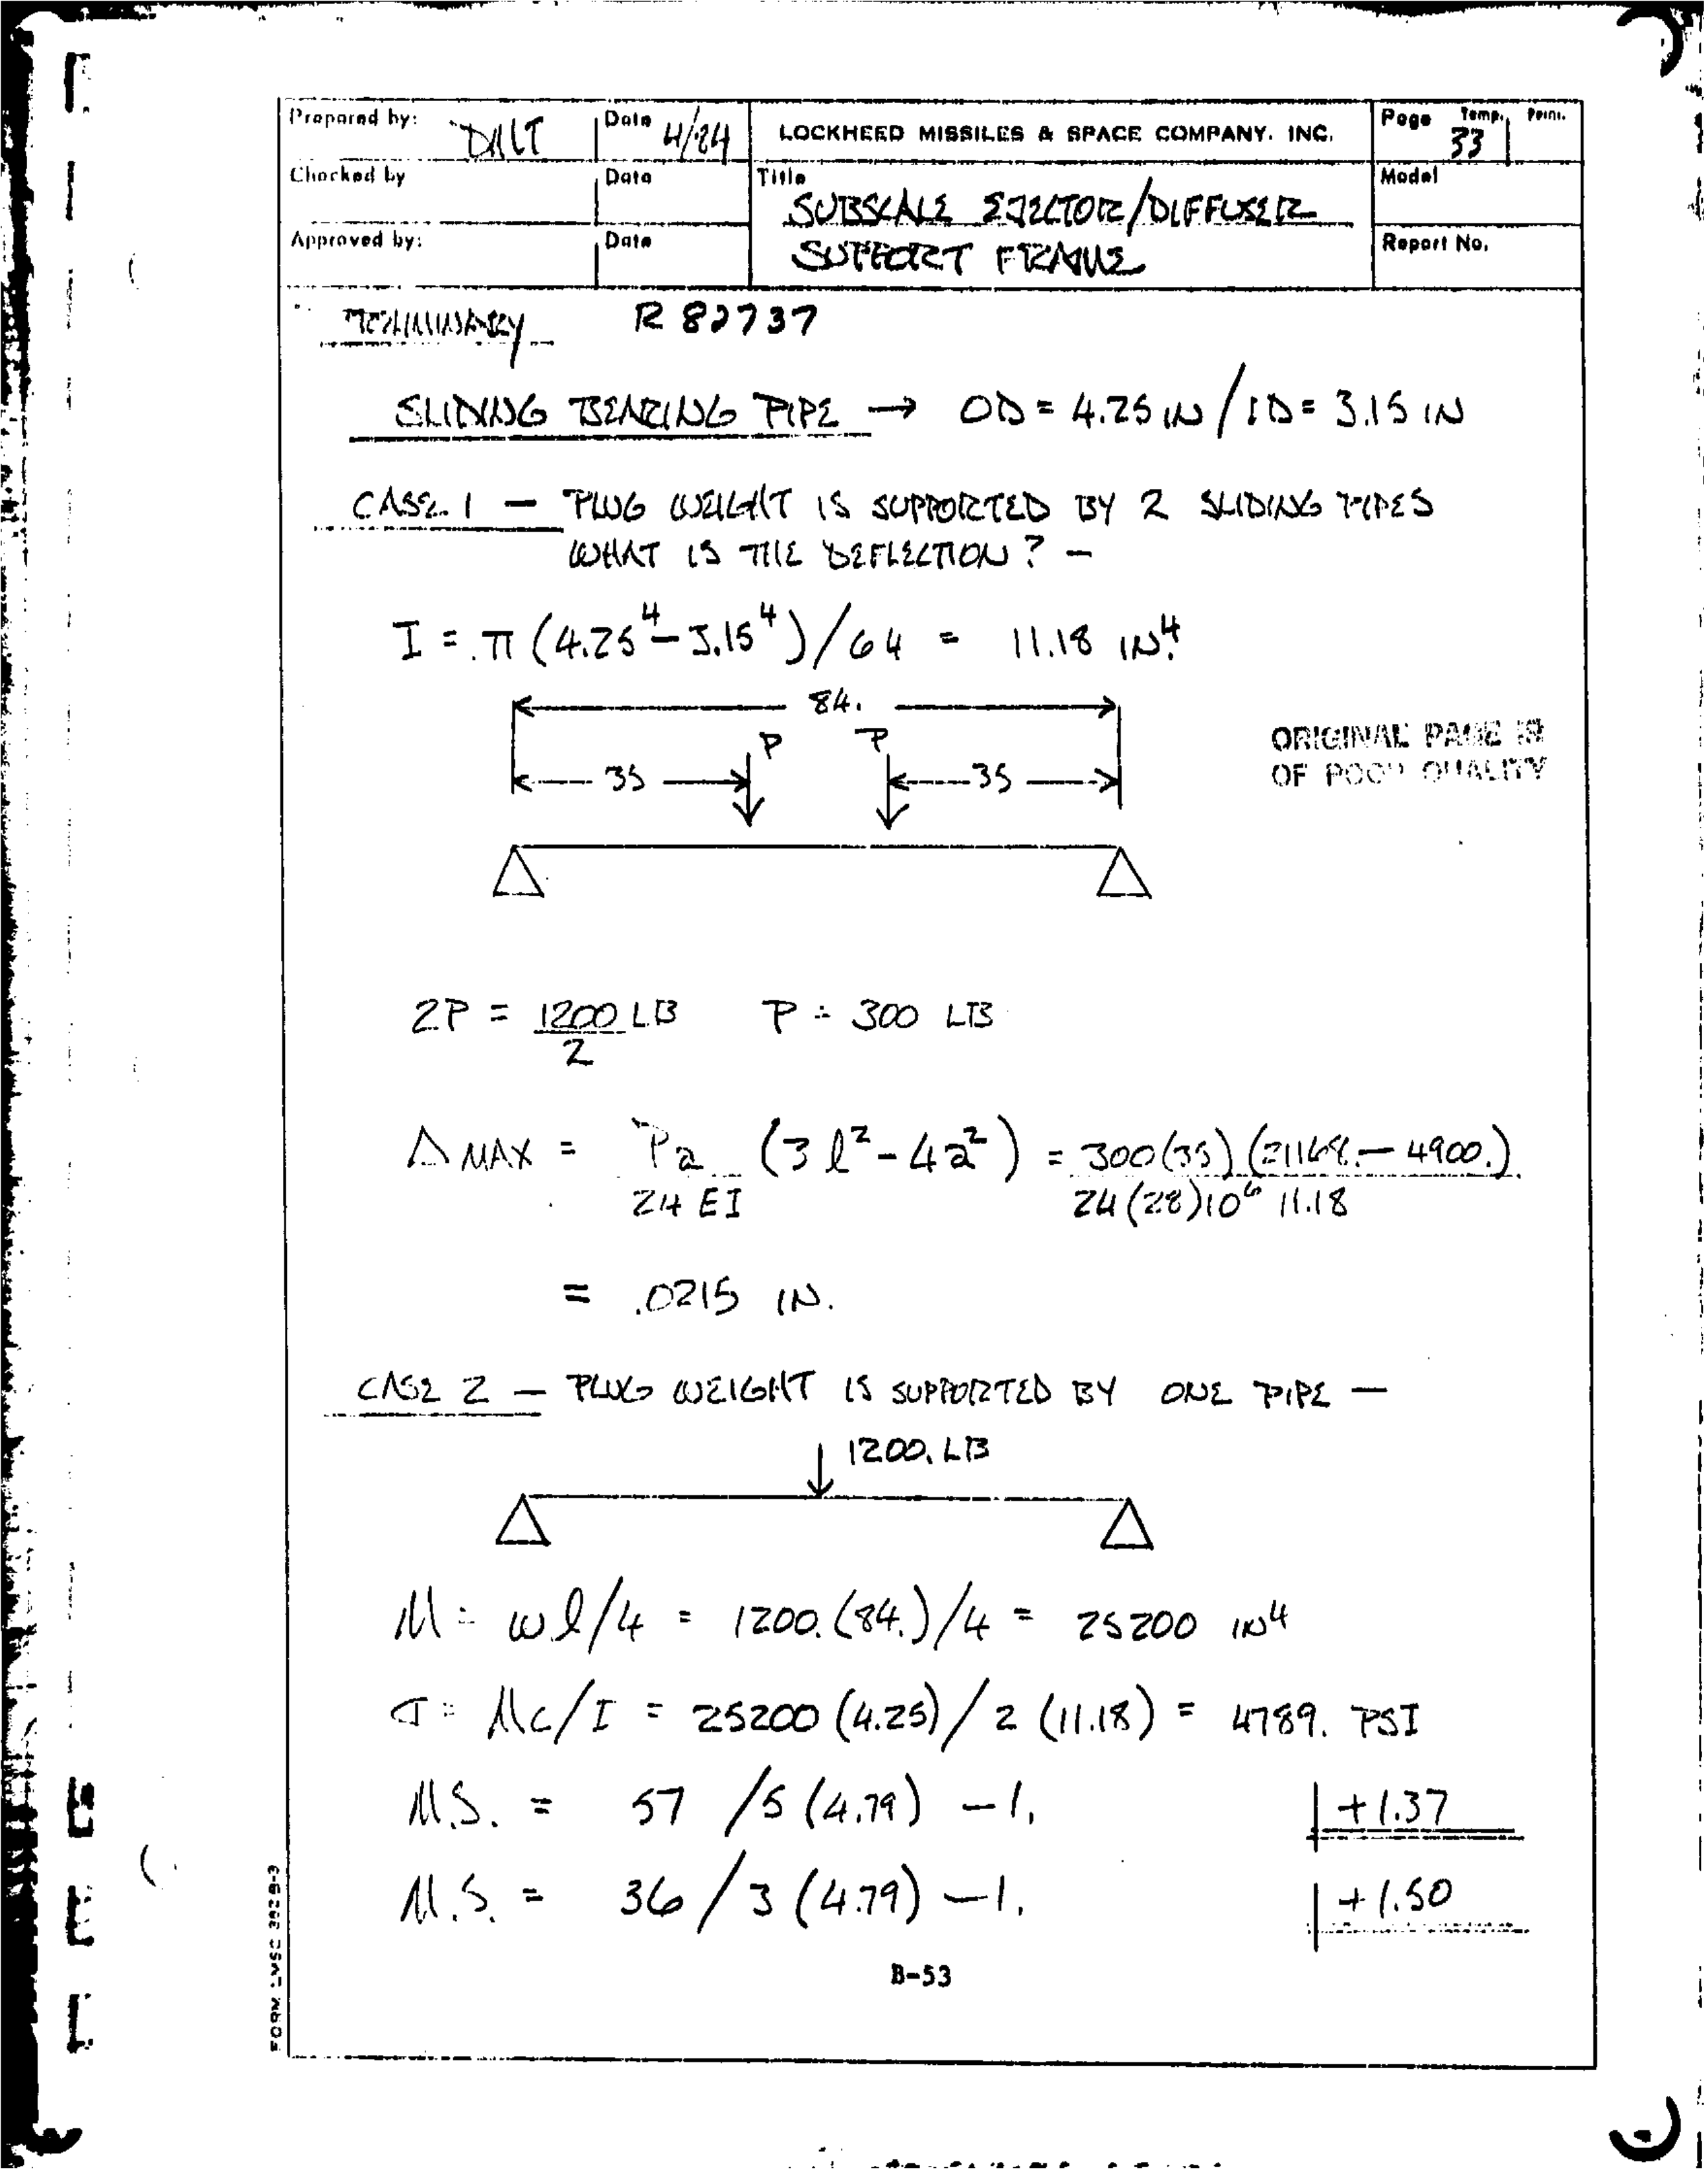 Prepared by: DALT Date 4/84 LOCKHEED MISSILES & SPACE COMPANY, INC. Page Temp. Perm.
33
Checked by Date Title Model
SUBSCALE EJECTOR/DIFFUSER
Approved by: Date SUPPORT FRAME Report No.
PRELIMINARY R 82737
SLIDING BEARING PIPE → OD = 4.25 IN / ID = 3.15 IN
CASE 1 — PLUG WEIGHT IS SUPPORTED BY 2 SLIDING PIPES
WHAT IS THE DEFLECTION? —
I = π (4.25⁴ – 3.15⁴) / 64 = 11.18 IN⁴
84.
P P
35 35
ORIGINAL PAGE IS
OF POOR QUALITY
2P = 1200 LB / 2 P = 300 LB
Δ MAX = Pa / 24 EI (3 l² – 4a²) = 300 (35) (21168. – 4900.) / 24 (28) 10⁶ 11.18
= .0215 IN.
CASE 2 — PLUG WEIGHT IS SUPPORTED BY ONE PIPE —
1200. LB
M = wl/4 = 1200. (84.) / 4 = 25200 IN⁴
σ = Mc/I = 25200 (4.25) / 2 (11.18) = 4789. PSI
M.S. = 57 / 5 (4.79) – 1. +1.37
M.S. = 36 / 3 (4.79) – 1. +1.50
B-53